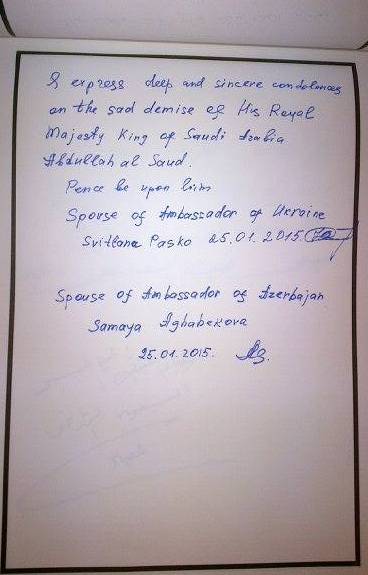 I express deep and sincere condolences
on the sad demise of His Royal
Majesty King of Saudi Arabia
Abdullah al Saud.
Peace be upon him
Spouse of Ambassador of Ukraine
Svitlana Pasko 25.01.2015
Spouse of Ambassador of Azerbajan
Samaya Aghabekova
25.01.2015.